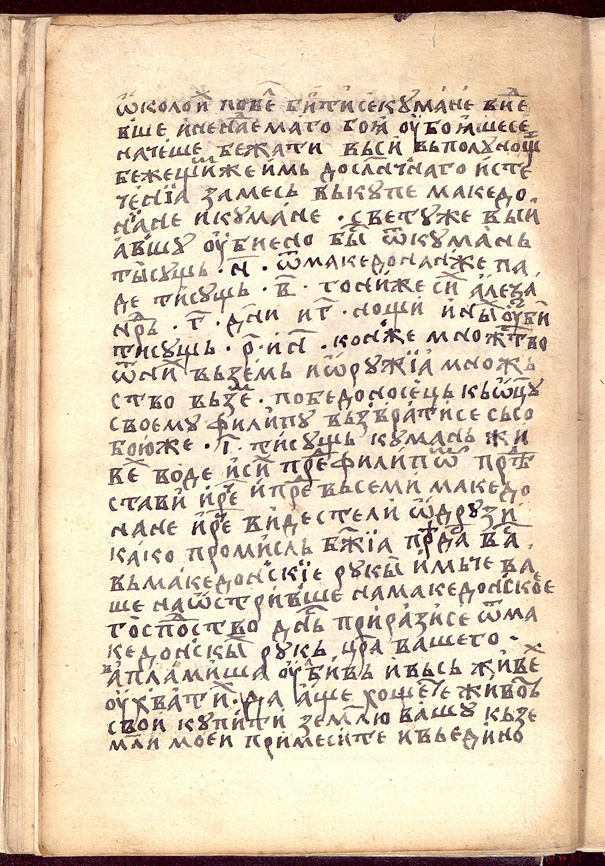 ѡ҆коло и҆ повⷷе бит҆исе кумане виⷣе
вше и҆ненⷣаемаго боꙗ оубоꙗшесе
начеше бежати вьси вьполунощⷨ
бежещи҆иже имь дослⷩчнаго исте
ченїа замесь вькупе македо
нꙗне и҆кумане · светуже вьсиꙗ҆
авшу оубиено быⷭ ѿкумань
тысущь · н҃ · ѿмакедонанже па
де тисущь · в҃ · тониже сїи алеѯа
нⷣрь · г҃ · дн҃и иг҃ · нощи ины оуби
тисущь · р҃ · ин҃ · конⷨже множⷭтво
ѿниⷯ вьземь иѡ҆ружїа множь
ство вьзеⷨ · победоносець кьѡц҃у
своему филипу вьзвратисе сьсо
бою же · г҃ · тисущь кумань жи
веⷯ воде исиⷯ прⷣе филипоⷨ прⷣе
стави иреⷱ ипрⷣе вьсеми македо
нане иреⷱ видестели ѡ҆друзи
како промисль бж҃їа прⷣѣда ваⷭ
вьмакедонскїе рукы имьче ва
ше наѡ҆стривше намакедонское
госпоⷣство днⷭь приразисе ѿма
кедонскы рукь црⷭа вашего ·
а҆пламиша оубивь ивьсь живеⷯ
оухвати · да аще хощете животь
свои купити землю вашу кьзе
мли моеи примесите ивьедино